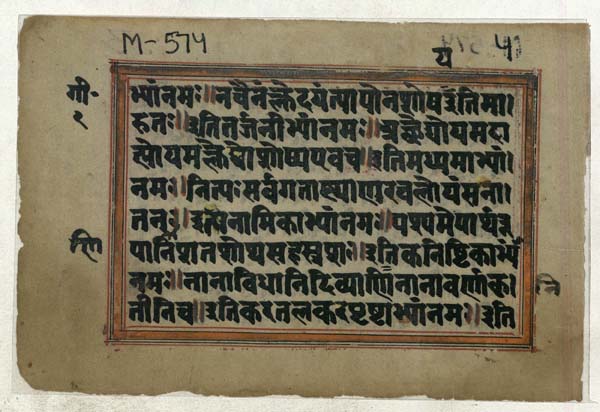 M-574
य
गी॰
२
भ्यांनमः॥नचैनंक्लेदयंत्यापोनशोषइतिमा।
हतः॥इतितर्जनीभ्यांनमः॥अच्छेद्योयमदा
ह्योयमक्लेद्योशोष्यएवच॥इतिमध्यमाभ्यां।
नमः॥नित्यःसर्वगतःस्थाणुरचलोयंसना।
तनः॥इत्यनामिकाभ्यांनमः॥पश्यमेपार्थरू
पाणिशतशोथसहस्रशः॥इतिकनिष्टिकाभ्यं
नमः॥नानाविधानिदिव्यानिनानावर्णाकृ।
तीनिच॥इतिकरतलकरपृष्टाभ्यांनमः॥इति